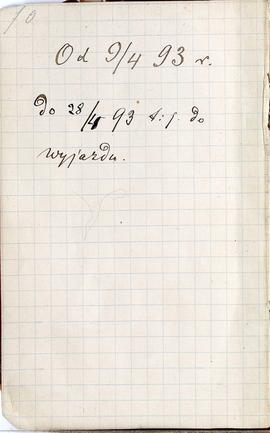 10
Od 9/4 93 r.
do 28/4 93 t: j. do
wyjazdu.